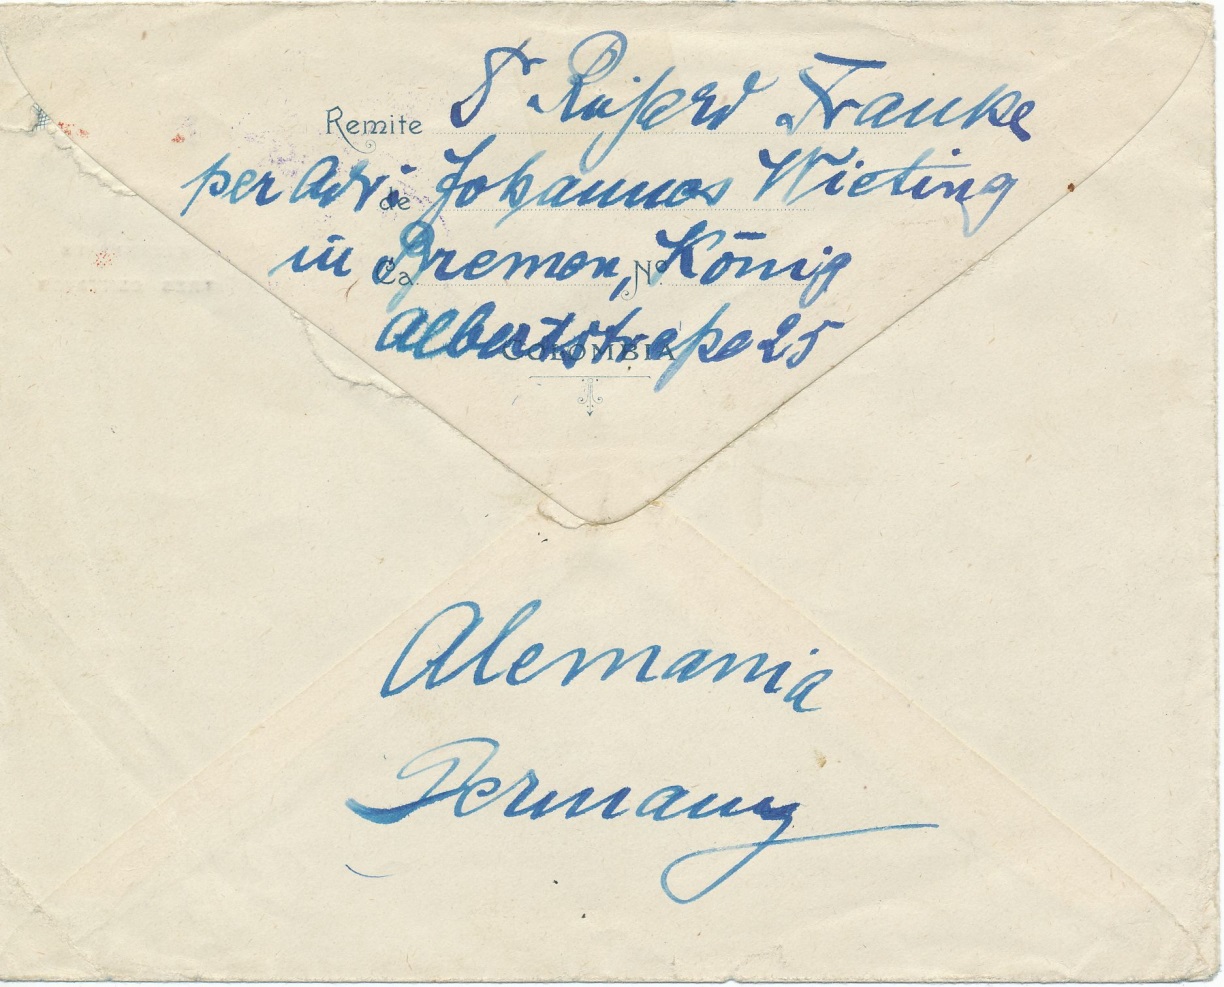 Remite Dr. Richard Franke
per Adr: Johannes Wieting
de
in Bremen, König
Ca Nº
Albertstraße 25
COLOMBIA
Alemania
Germany